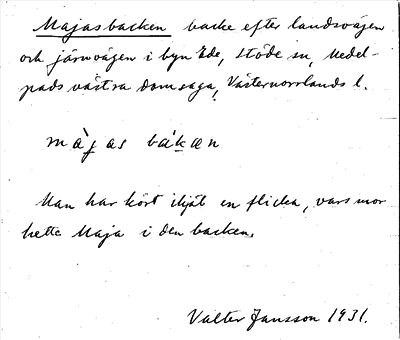 Majasbacken backe efter landsvägen
och järnvägen i byn Ede, Stöde sn, Medel-
pads västra domsaga, Västernorrlands l.
màjas bákæn
Man har kört ihjäl en flicka, vars mor
hette Maja i den backen.
Valter Jansson 1931.